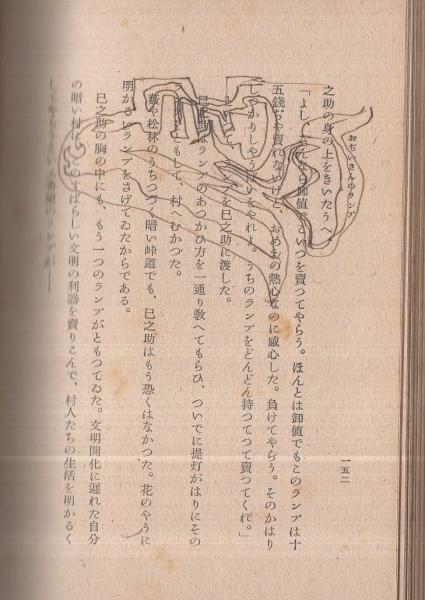 おぢいさんのランプ
一五二
之助の身の上をきいたうへ、
「よしなら卸値でこいつを賣つてやらう。ほんとは卸値でもこのランプは十
五錢ぢや賣れないけど、おめえの熱心なのに感心した。負けてやらう。そのかはり
しつかりしやうばいをやれよ。うちのランプをどんどん持つてつて賣つてくれ。」
といつて、ランプを巳之助に渡した。
巳之助はランプのあつかひ方を一通り敎へてもらひ、ついでに提灯がはりにその
ともして、村へむかつた。
藪や松林のうちつづく暗い峠道でも、巳之助はもう恐くはなかつた。花のやうに
明かるいランプをさげてゐたからである。
巳之助の胸の中にも、もう一つのランプがともつてゐた。文明開化に遲れた自分
の暗い村に、このすばらしい文明の利器を賣りこんで、村人たちの生活を明かるく